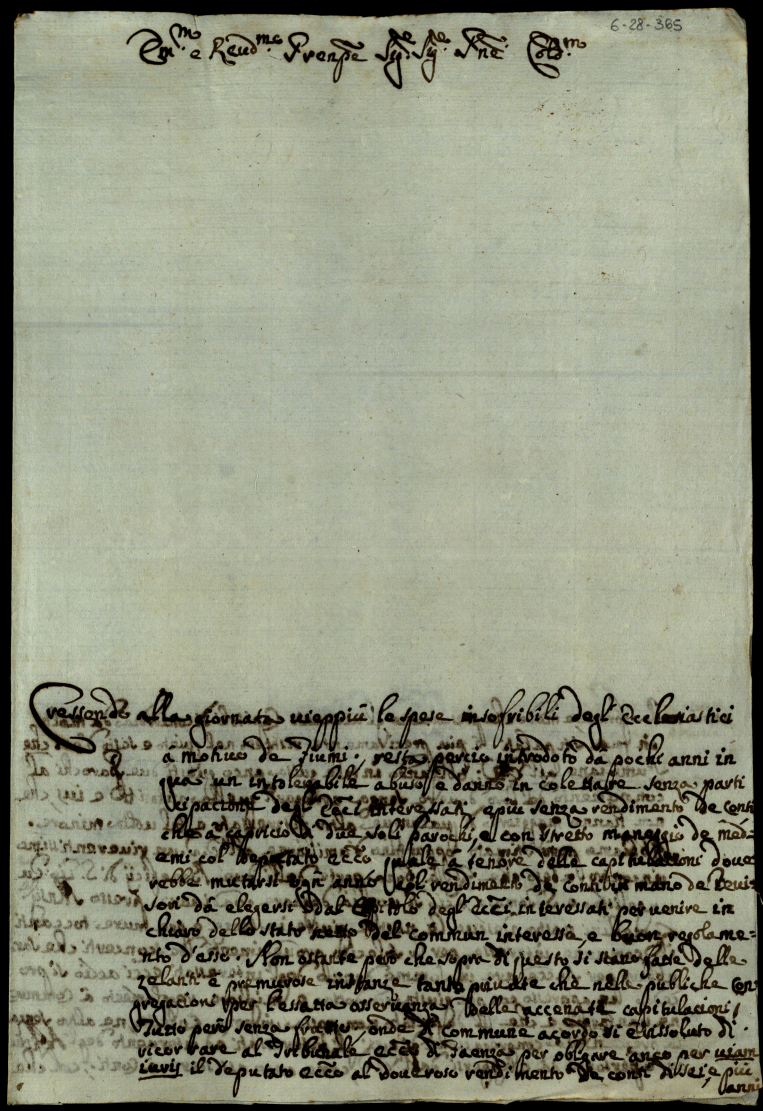 6-28-365
Em.mo e Reud.mo Prenpe Sig.e Sig.e Pne Col.mo
Cressendo alla giornata uieppiù le spese insofribili degl' Ecclesiastici
à motiuo de Fiumi, resta perciò introdotto dà pochi anni in
quà un intolerabile abuso, e danno in colettare senza parti
cipacione degl' Ecc.ci interessati, e più senza rendimento de conti
che à capricio di due soli parochi, e con stretto maneggio de med.
emi col deputato ecc.co quale à tenore delle capitulacioni doue
rebbe mutarsi ogn' anno, e del rendimento de conti in mano de Reui
sori dà elegersi dal Capitolo degl' Ecc.ci interessati per uenire in
chiaro dello stato netto del commun interesse, e buon regolame-
nto d'esso. Non ostante però che sopra di questo si siano fatte delle
zelanti e premurose instanze tanto priuate che nelle publiche con
gregacioni per l'essatta osseruanza delle accenate capitulacioni,
Tutto però senza frutto, onde di commune acordo si è rissoluto di
ricorrare al Tribunale ecc.co di Faenza per obligare anco per uiam
iuris il deputato ecc.co al doueroso rendimento de conti di sei, e più
anni